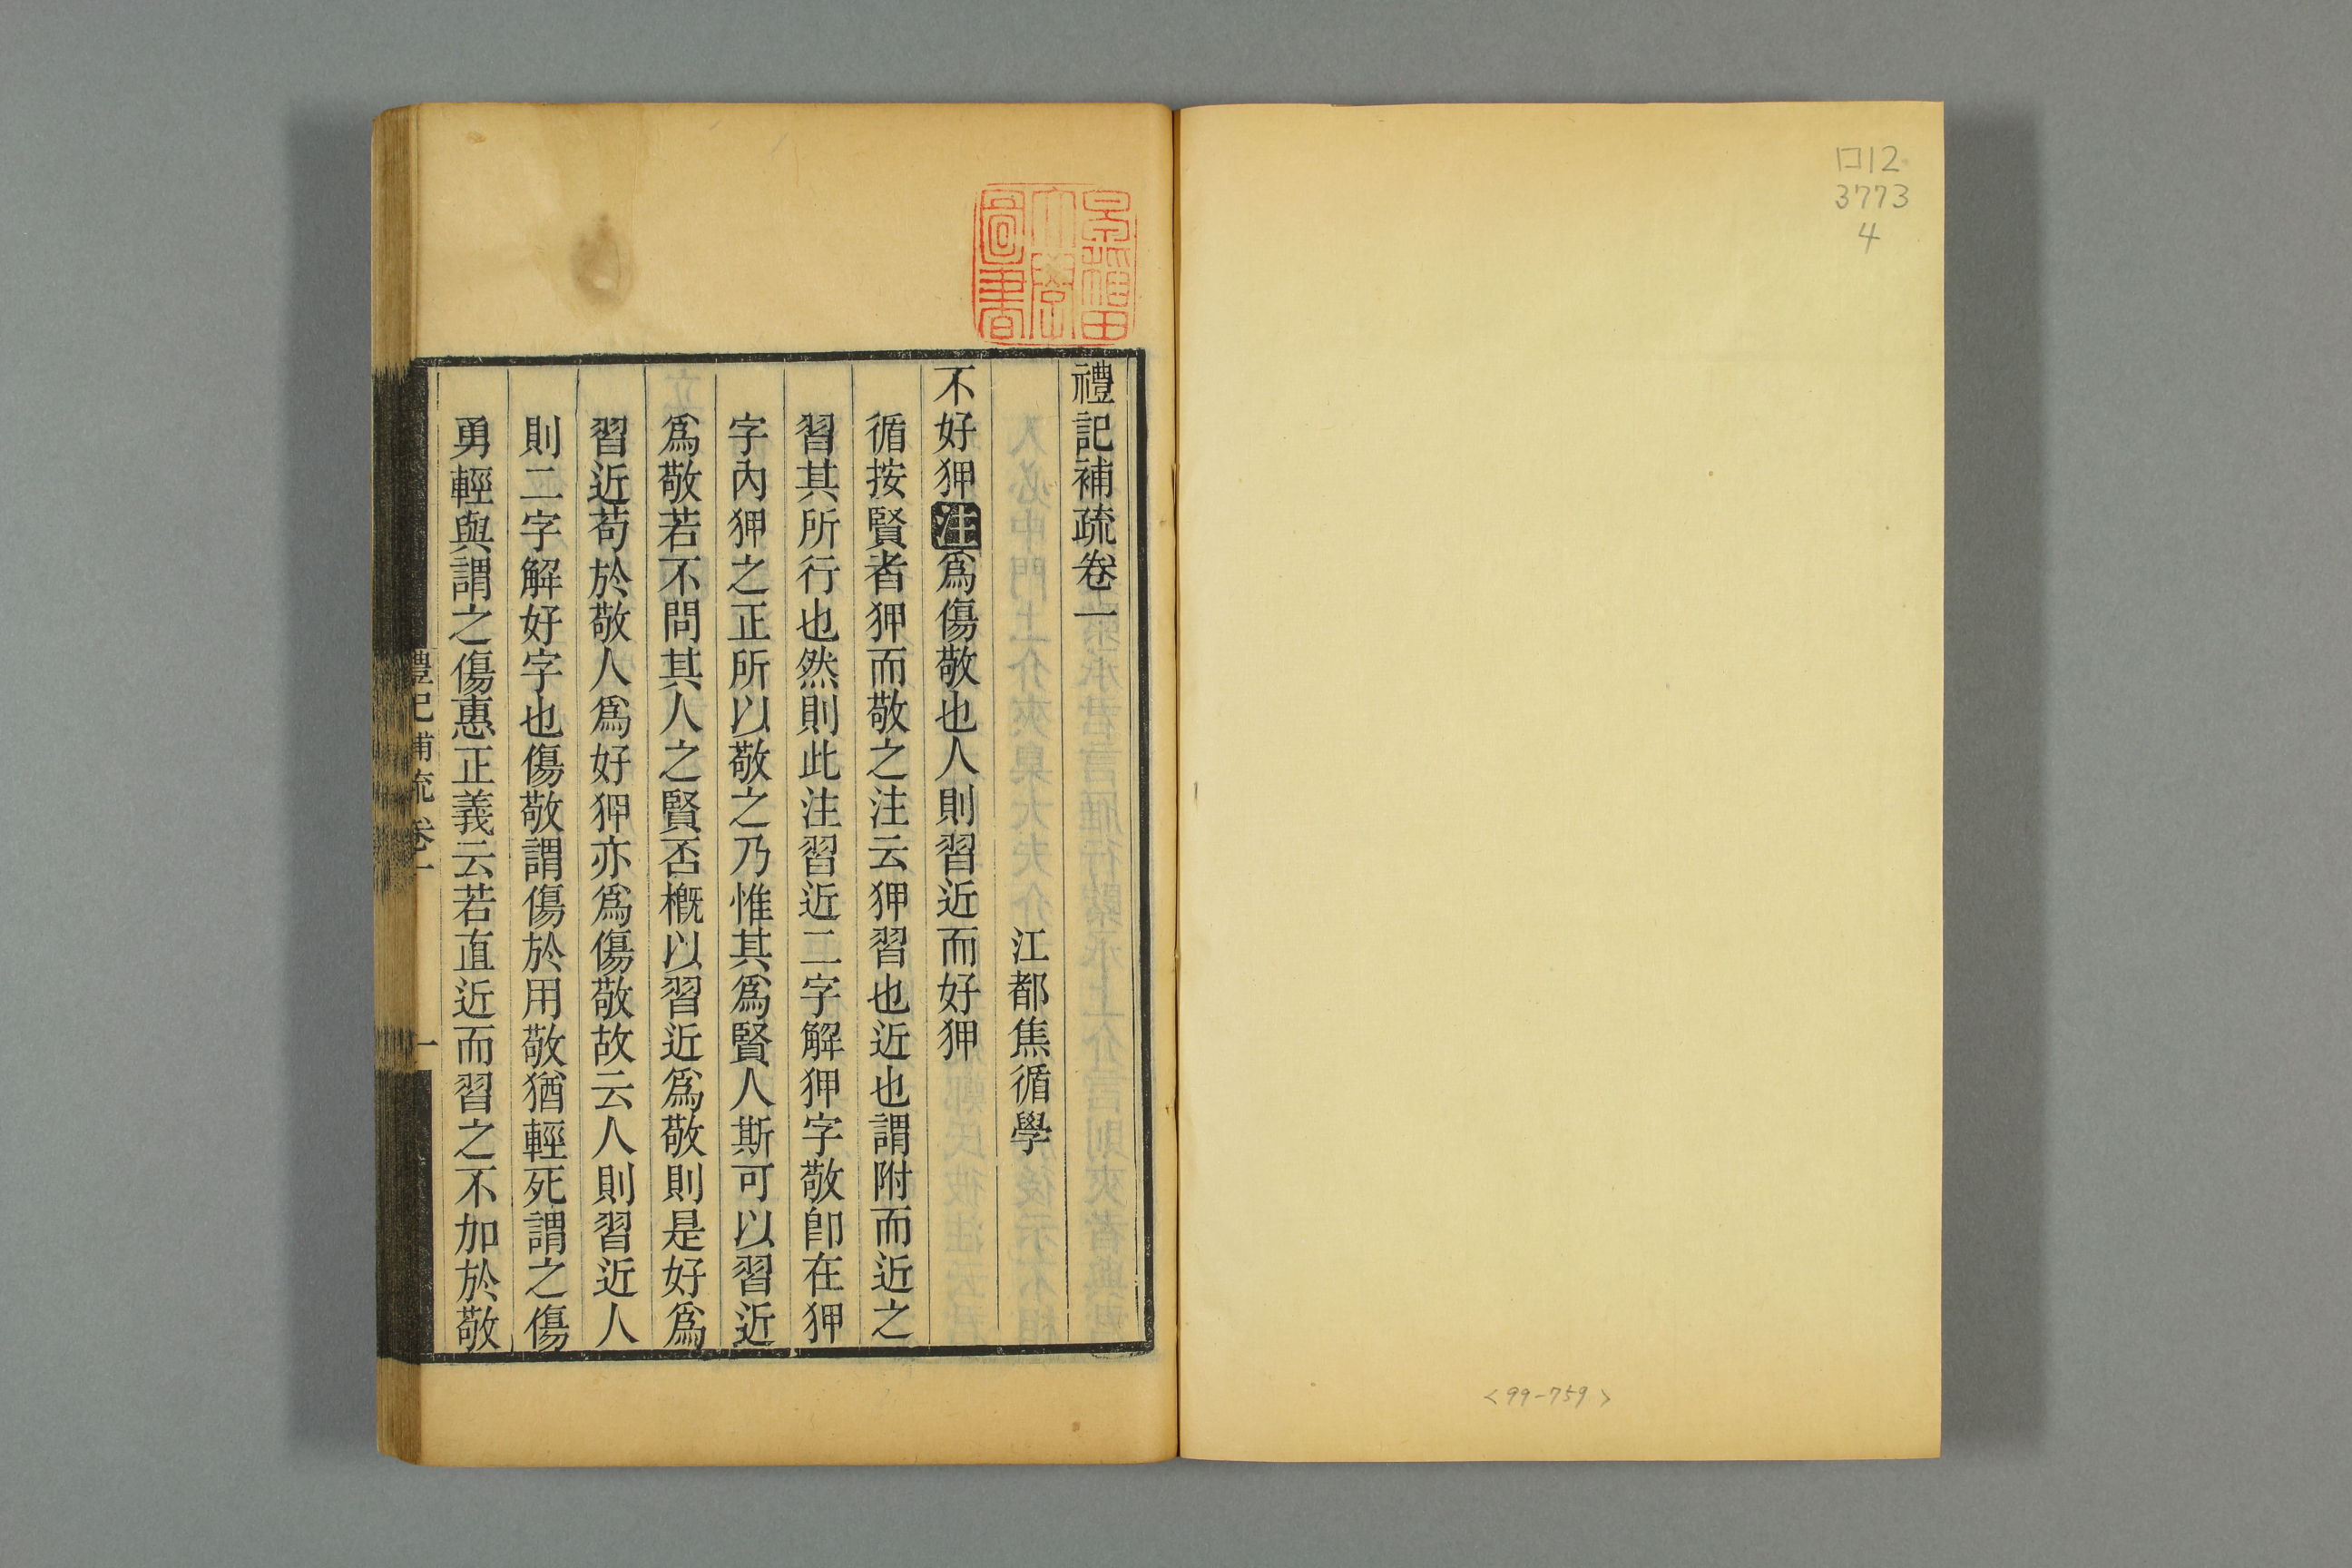 口12
3773
4
<99-759>
早稲田
大學
圖書
禮記補疏卷一
江都焦循學
不好狎注爲傷敬也人則習近而好狎
循按賢者狎而敬之注云狎習也近也謂附而近之
習其所行也然則此注習近二字解狎字敬卽在狎
字內狎之正所以敬之乃惟其爲賢人斯可以習近
爲敬若不問其人之賢否槪以習近爲敬則是好爲
習近苟於敬人爲好狎亦爲傷敬故云人則習近人
則二字解好字也傷敬謂傷於用敬猶輕死謂之傷
勇輕與謂之傷惠正義云若直近而習之不加於敬
禮記補疏卷一
一